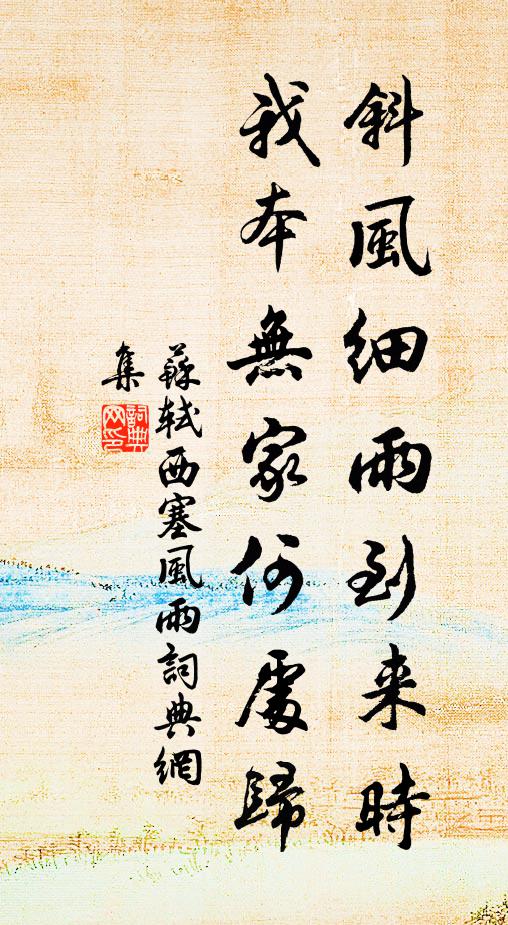 斜風細雨到来時
我本無家何處歸
蘇軾西塞風雨詞典網
集
詞典網印